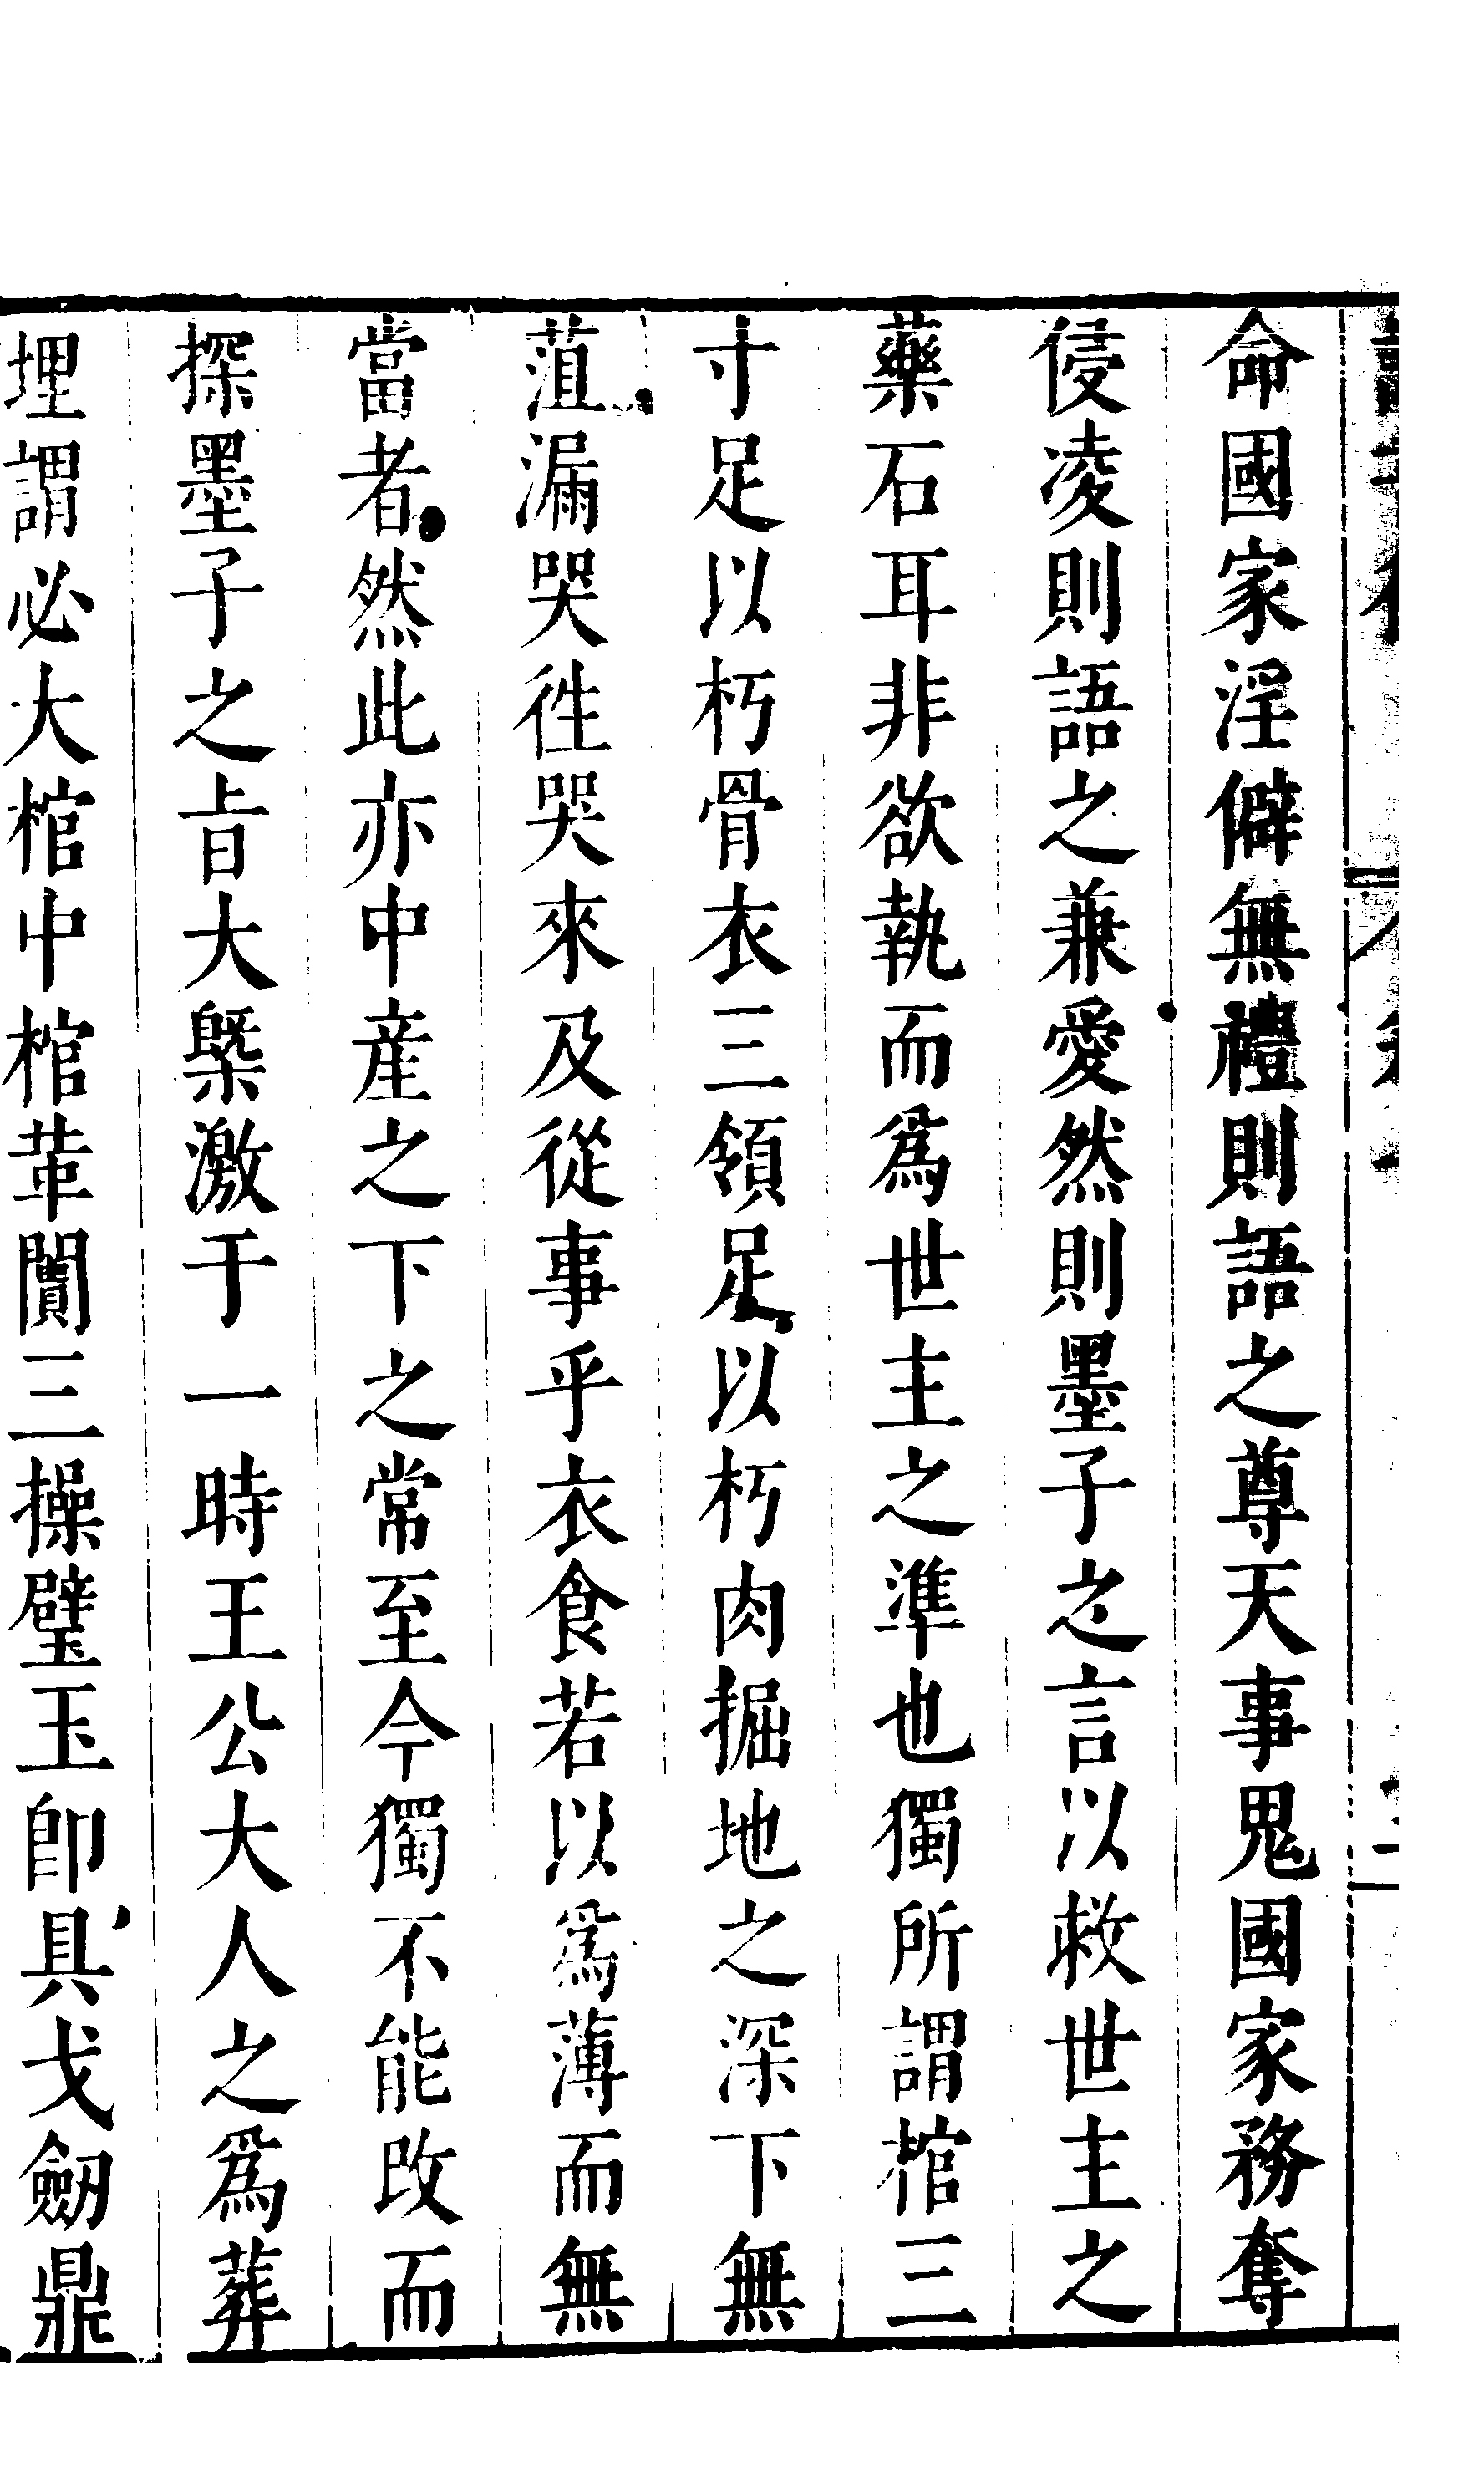 命國家淫僻無禮則語之尊天事鬼國家務奪
侵凌則語之兼愛然則墨子之言以救世主之
藥石耳非欲執而爲世主之準也獨所謂棺三
寸足以朽骨衣三領足以朽肉掘地之深下無
菹漏哭徃哭來及從事乎衣食若以爲薄而無
當者然此亦中產之下之常至今獨不能改而
探墨子之㫖大槩激于一時王公大人之爲葬
埋謂必大棺中棺革闠三操璧玉卽具戈劒鼎